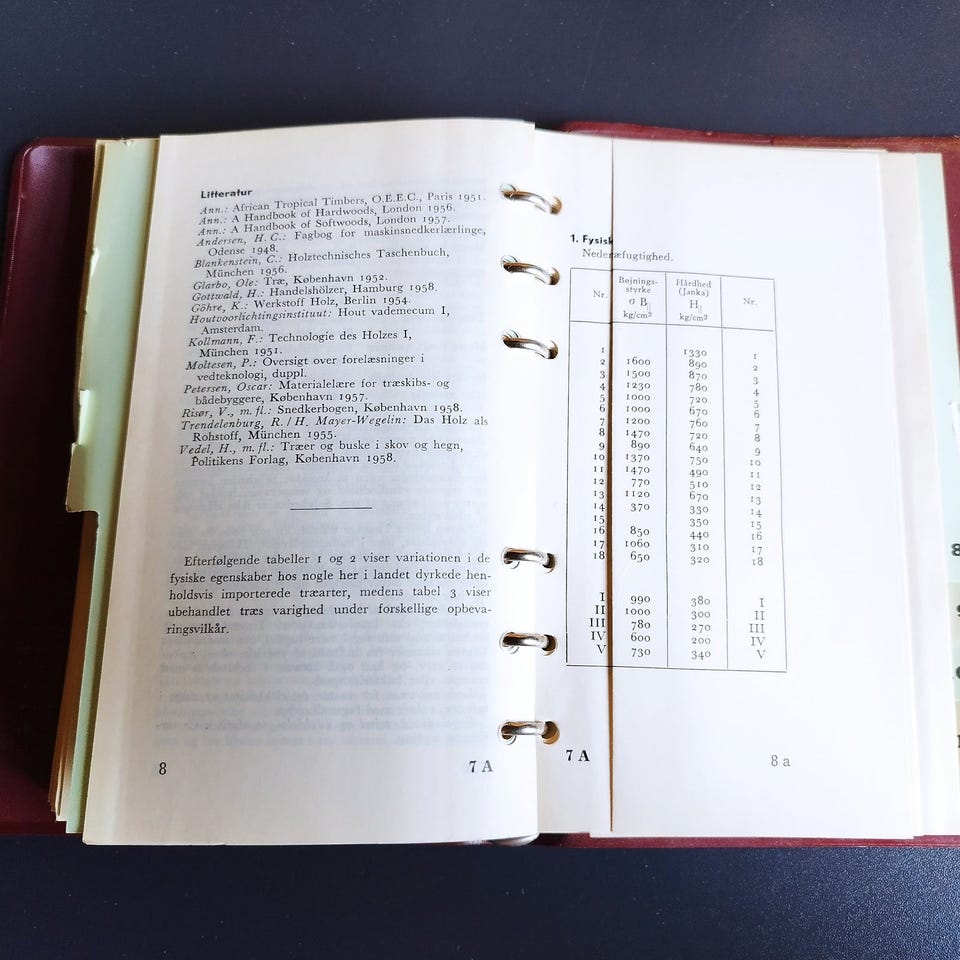 Litteratur
Ann.: African Tropical Timbers, O.E.E.C., Paris 1951.
Ann.: A Handbook of Hardwoods, London 1956.
Ann.: A Handbook of Softwoods, London 1957.
Andersen, H. C.: Fagbog for maskinsnedkerlærlinge,
Odense 1948.
Blankenstein, C.: Holztechnisches Taschenbuch,
München 1956.
Glarbo, Ole: Træ, København 1952.
Gottwald, H.: Handelshölzer, Hamburg 1958.
Göhre, K.: Werkstoff Holz, Berlin 1954.
Houtvoorlichtingsinstituut: Hout vademecum I,
Amsterdam.
Kollmann, F.: Technologie des Holzes I,
München 1951.
Moltesen, P.: Oversigt over forelæsninger i
vedteknologi, duppl.
Petersen, Oscar: Materialelære for træskibs- og
bådebyggere, København 1957.
Risør, V., m. fl.: Snedkerbogen, København 1958.
Trendelenburg, R. / H. Mayer-Wegelin: Das Holz als
Rohstoff, München 1955.
Vedel, H., m. fl.: Træer og buske i skov og hegn,
Politikens Forlag, København 1958.
Efterfølgende tabeller 1 og 2 viser variationen i de
fysiske egenskaber hos nogle her i landet dyrkede hen-
holdsvis importerede træarter, medens tabel 3 viser
ubehandlet træs varighed under forskellige opbeva-
ringsvilkår.
8 7 A
1. Fysisk
Nederæfugtighed.
Nr. Bøjnings-styrke σ B∥ kg/cm² Hårdhed (Janka) H∥ kg/cm² Nr.
1 1330 1
2 1600 890 2
3 1500 870 3
4 1230 780 4
5 1000 720 5
6 1000 670 6
7 1200 760 7
8 1470 720 8
9 890 640 9
10 1370 750 10
11 1470 490 11
12 770 510 12
13 1120 670 13
14 370 330 14
15 350 15
16 850 440 16
17 1060 310 17
18 650 320 18
I 990 380 I
II 1000 300 II
III 780 270 III
IV 600 200 IV
V 730 340 V
7 A 8 a